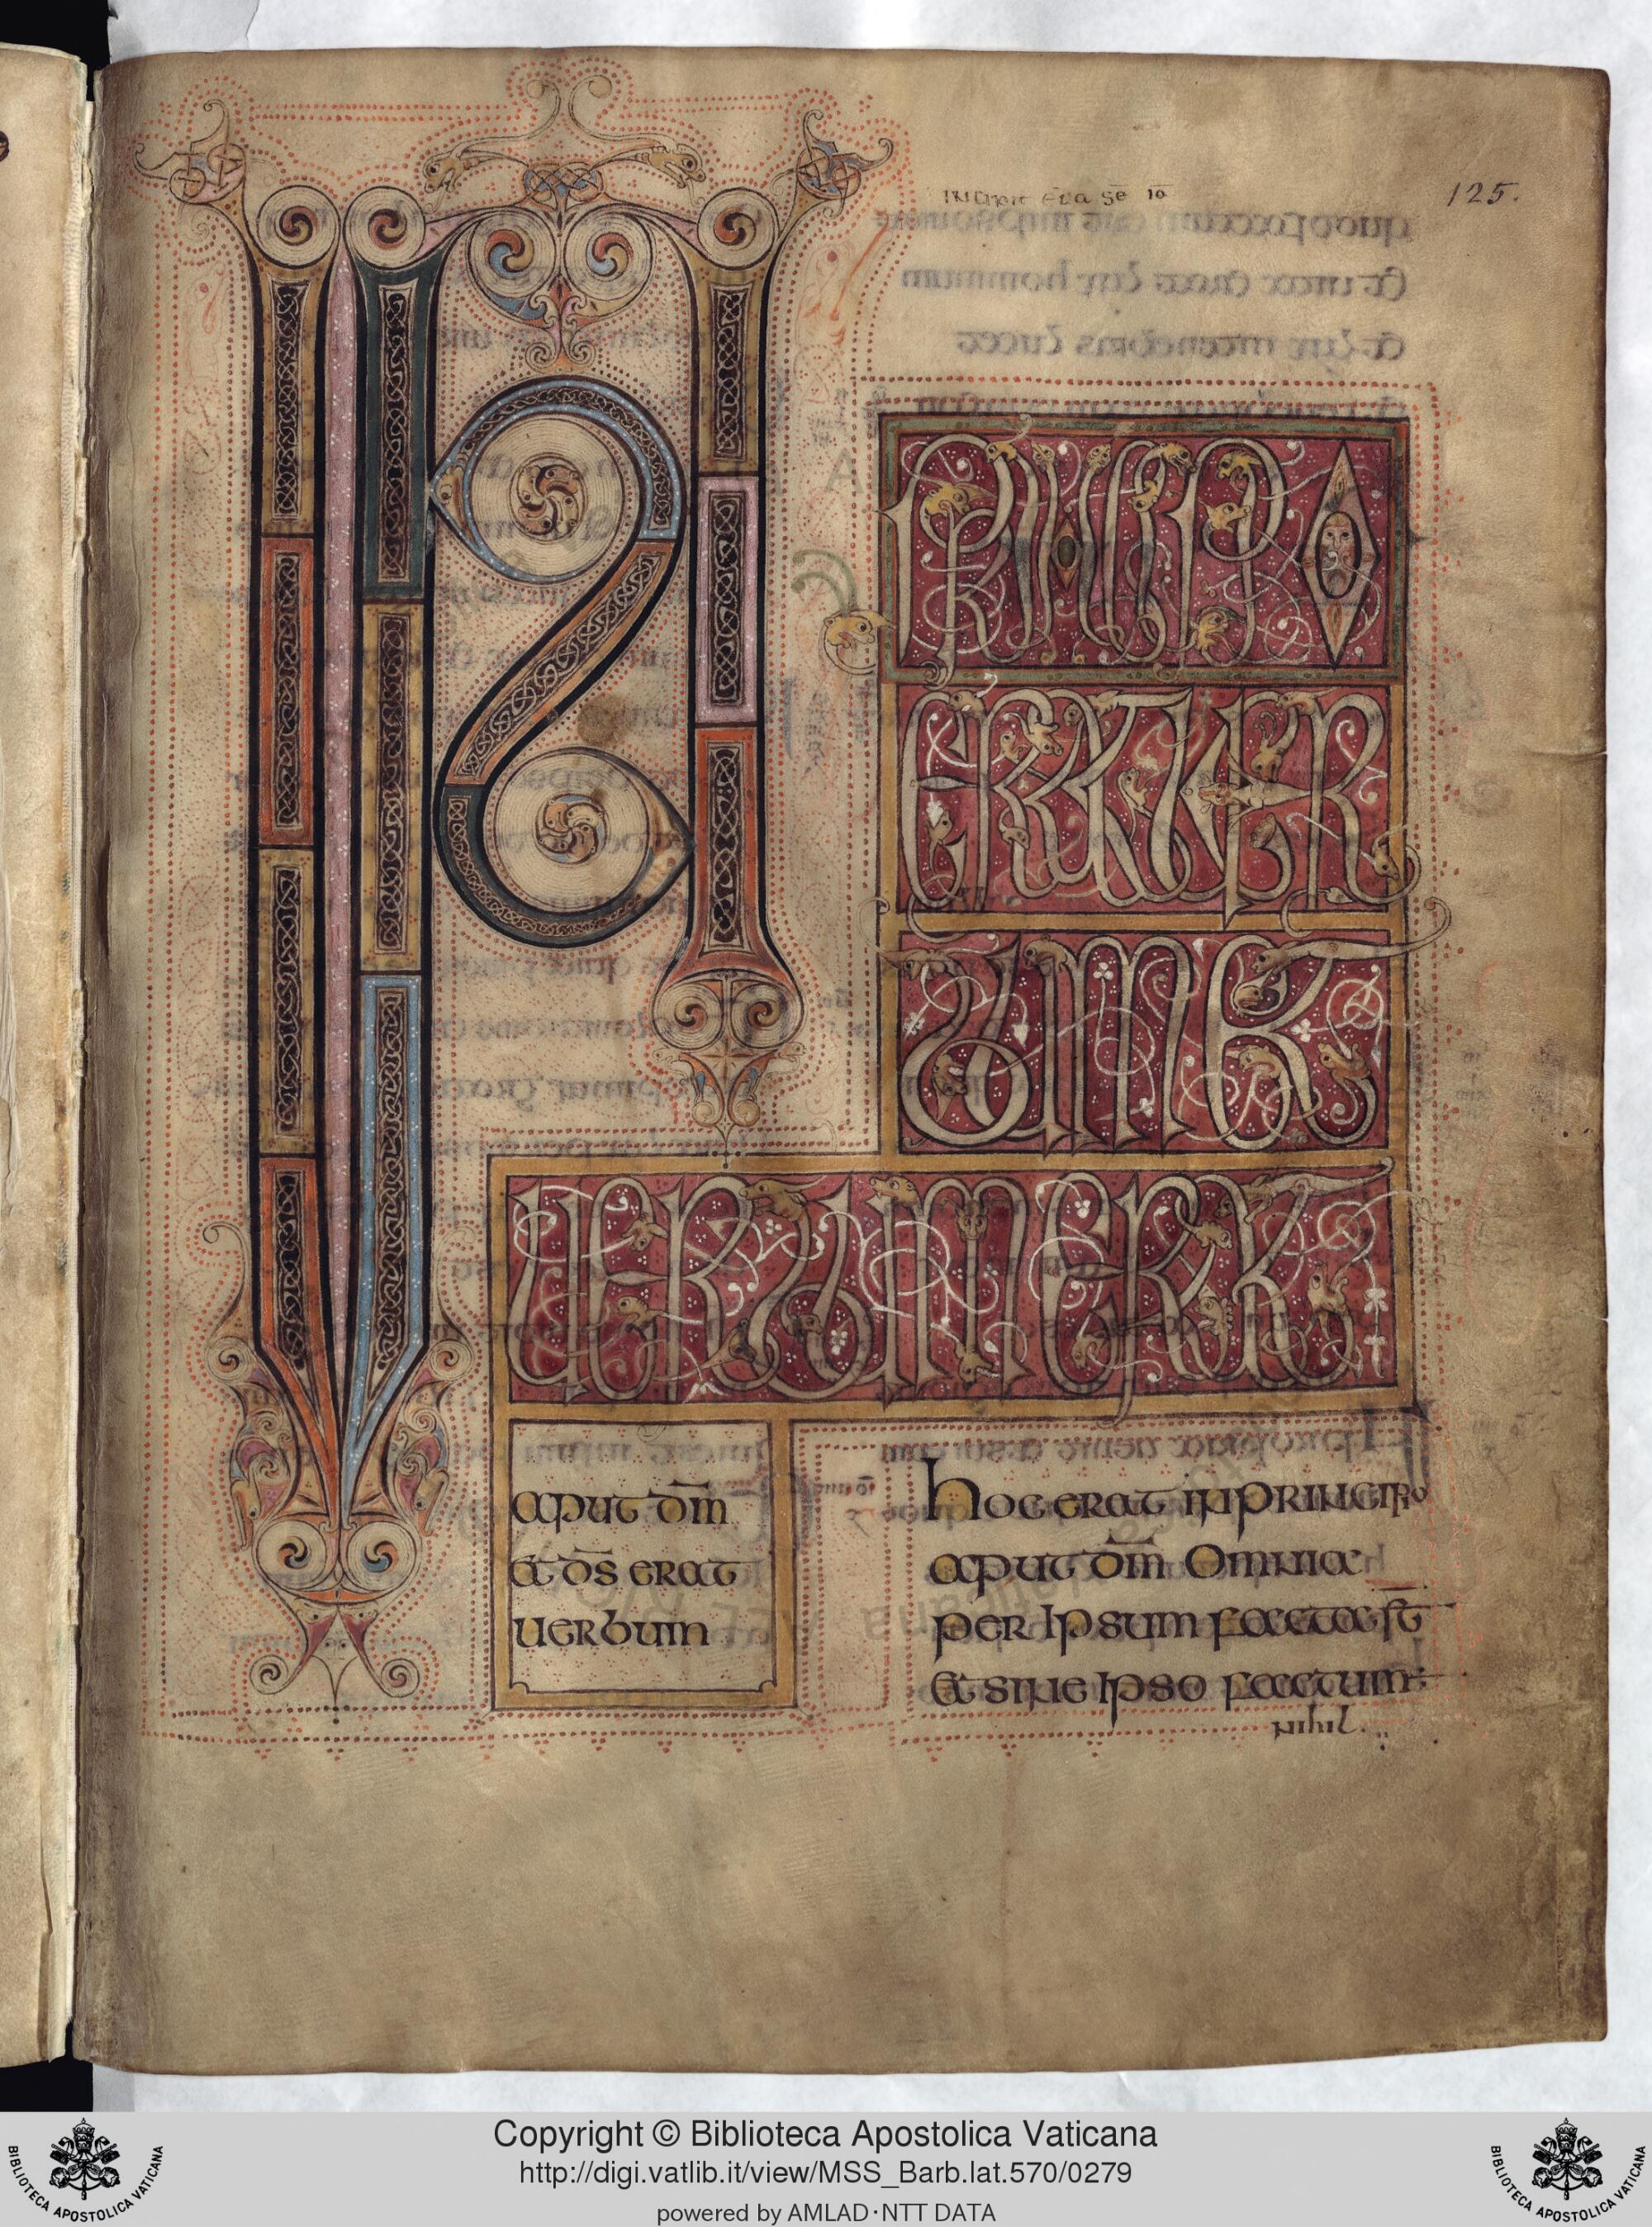 INCipit Eua sē iō
125.
IN
PRINCIPIO
ERAT UER
BUM ET
UERBUM ERAT
aput dm̄
et d̄s erat
uerbum
hoc erat in principio
aput dm̄ Omnia
per ipsum facta est
et sine ipso factum:
nihil.
Copyright © Biblioteca Apostolica Vaticana
http://digi.vatlib.it/view/MSS_Barb.lat.570/0279
powered by AMLAD·NTT DATA
BIBLIOTECA APOSTOLICA VATICANA
BIBLIOTECA APOSTOLICA VATICANA